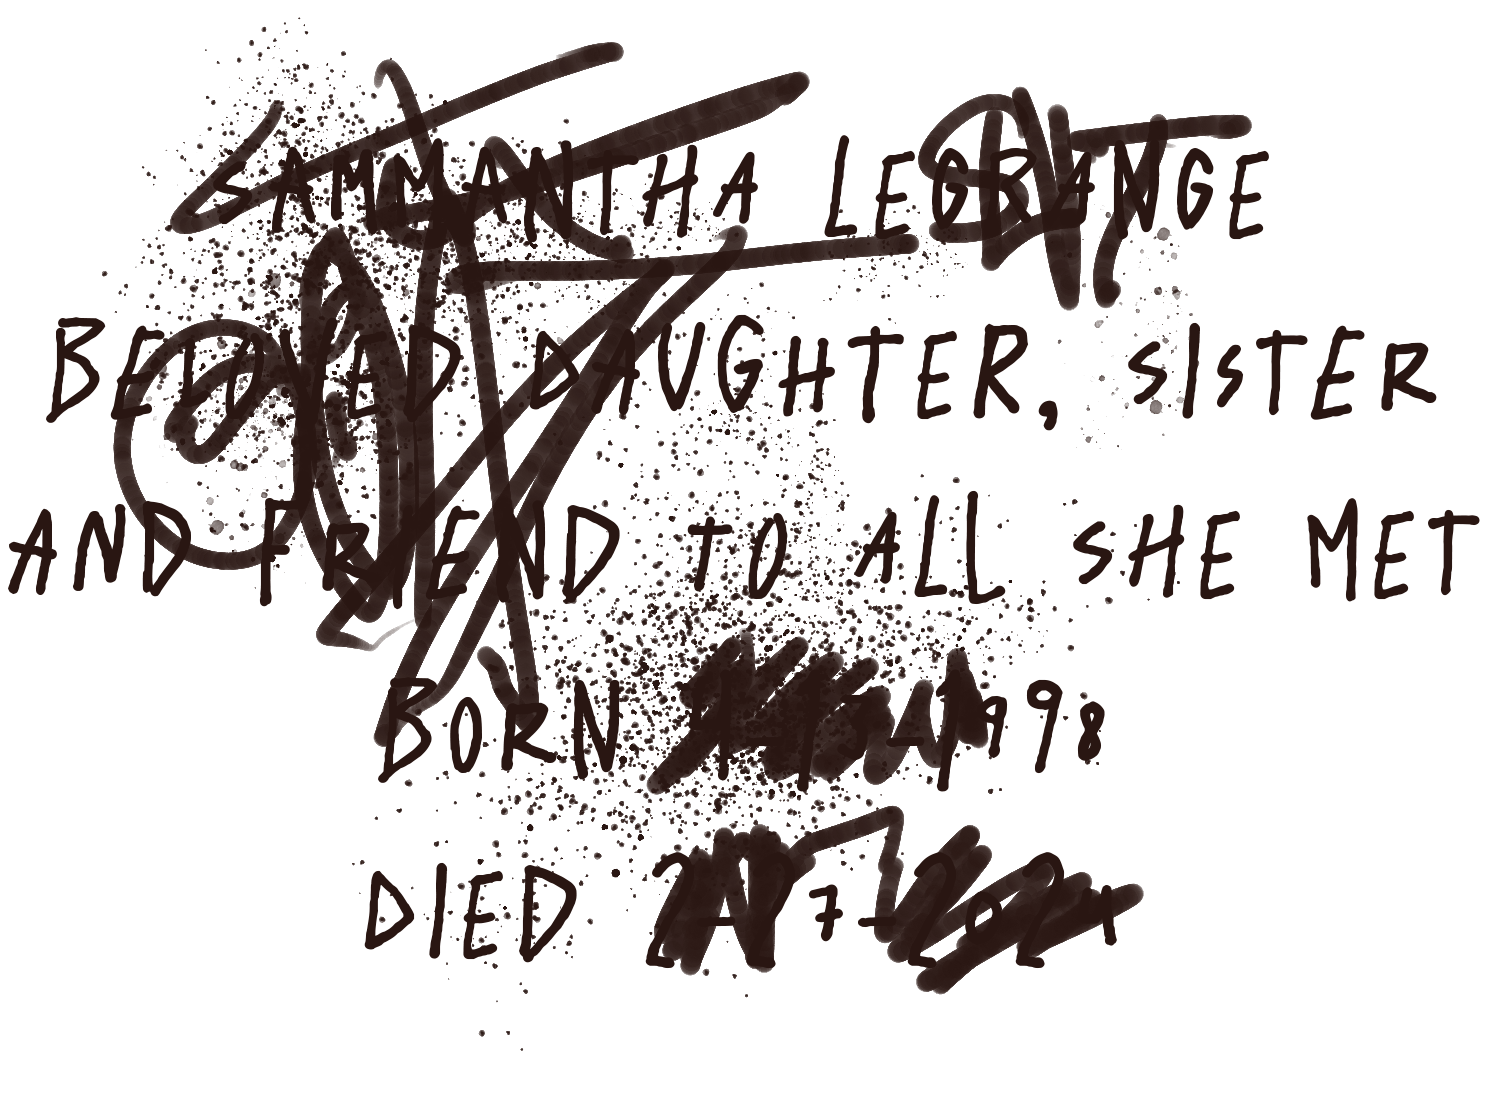 SAMMANTHA LEGRANGE
BELOVED DAUGHTER, SISTER
AND FRIEND TO ALL SHE MET
BORN
DIED